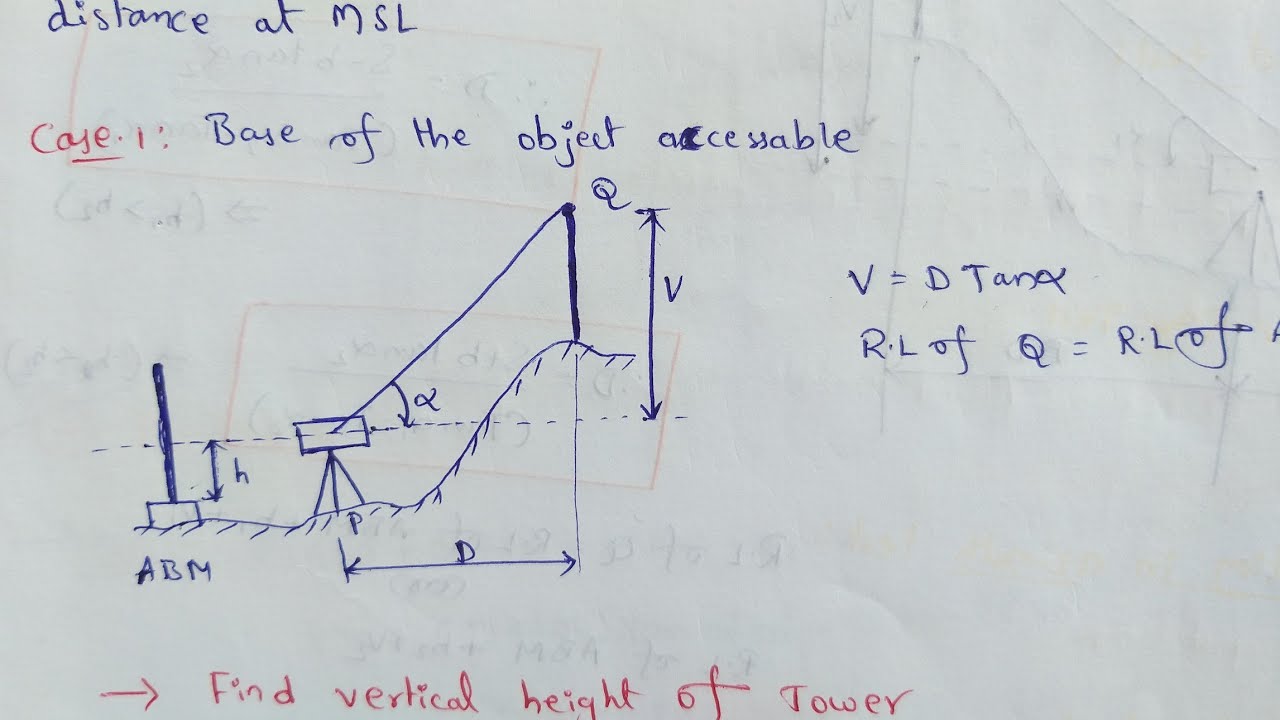 distance at MSL
Case.1: Base of the object accessable
Q
V
V = D Tanα
R.L of Q = R.L of A
α
h
P
D
ABM
→ Find vertical height of Tower